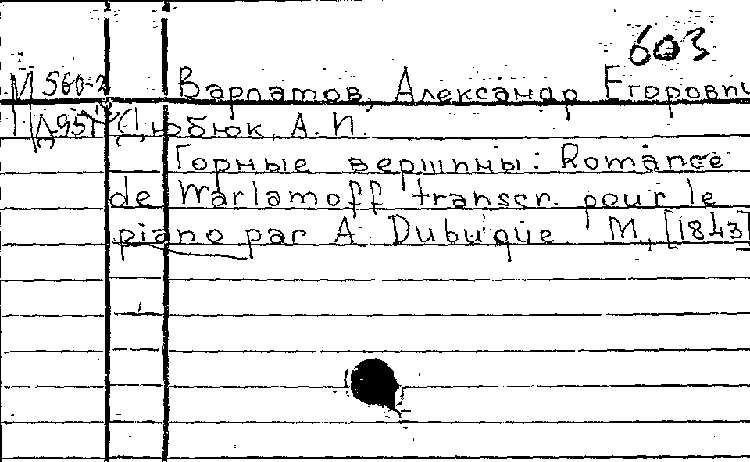 603
М 560-2 Варламов, Александр Егорович
Д951 Дюбюк, А. И.
Горные вершины: Romance
de Warlamoff transcr. pour le
piano par A Dubuque. М, [1843]